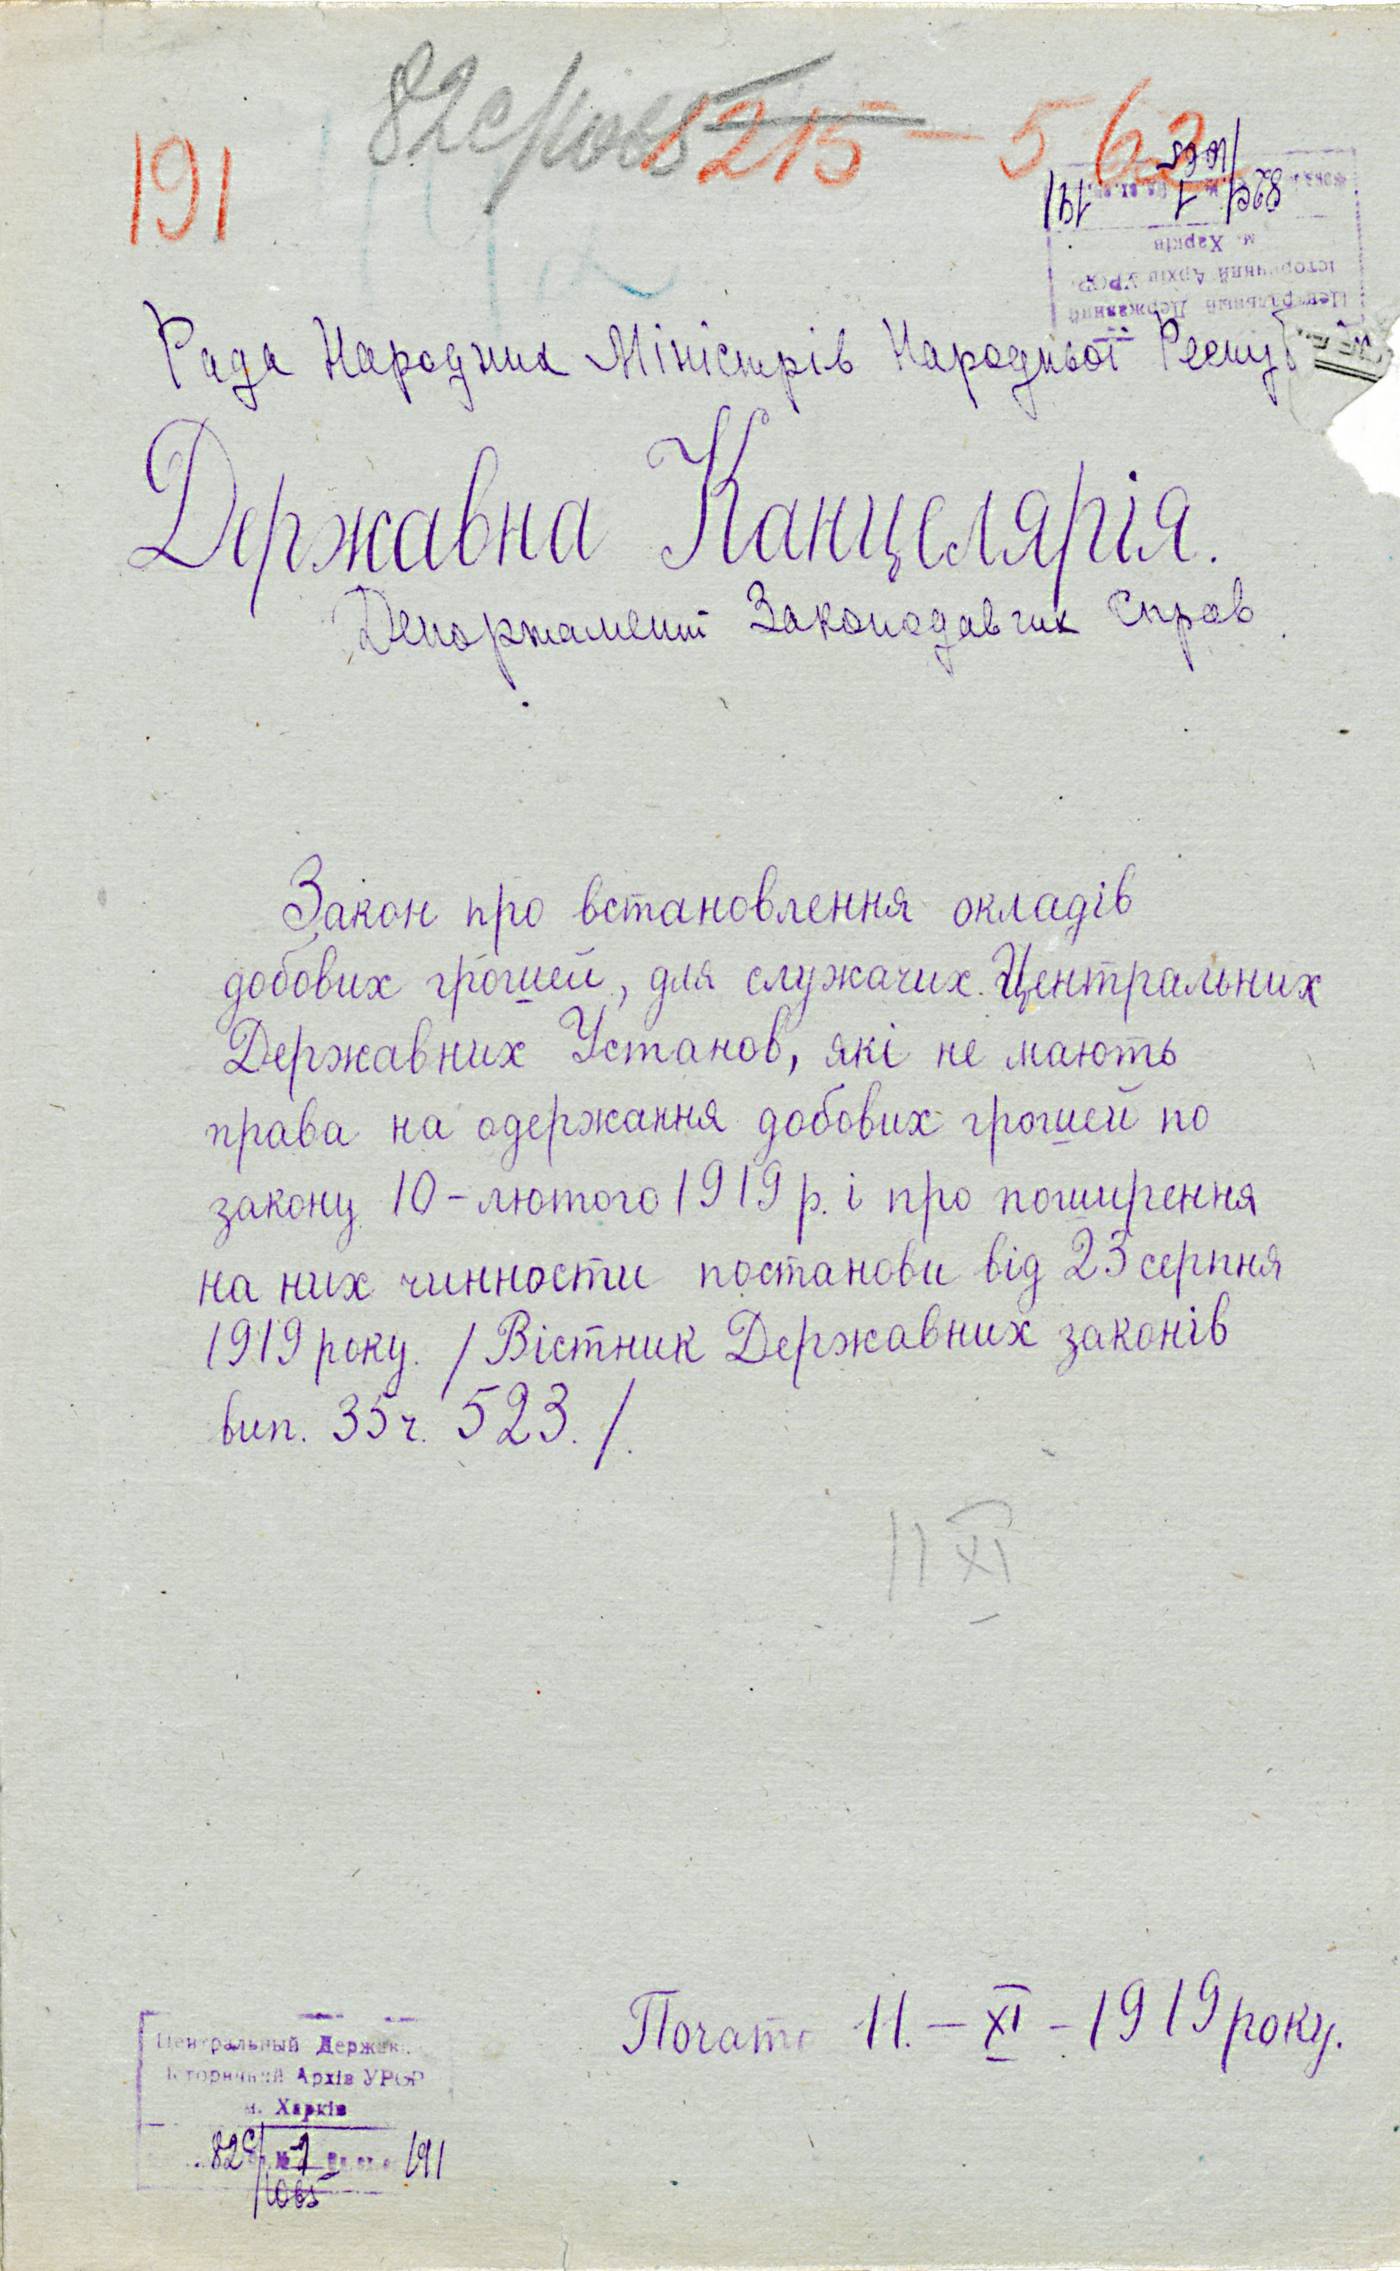 82с/1065
1215 - 562
191
82с/1065 1 191
м. Харків
Історичний Архів УРСР
Центральный Державний
Рада Народних Міністрів Народньої
Державна Канцелярія.
Департамент Законодавчих Справ.
Закон про встановлення окладів
добових грошей, для служачих Центральних
Державних Установ, які не мають
права на одержання добових грошей по
закону 10-лютого 1919 р. і про поширення
на них чинности постанови від 23 серпня
1919 року. /Вістник Державних законів
вип. 35 ч. 523./.
11 XI
Почато 11.-XI-1919 року.
Центральный Держав
Історичний Архів УРСР
м. Харків
82с/1065 № 1 191